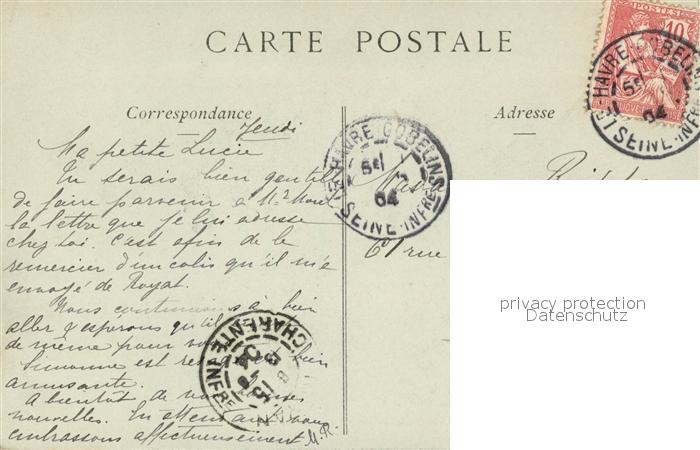 CARTE POSTALE
Correspondance
Adresse
POSTES
10
LE HAVRE GOBELINS
5E
04
SEINE-INFRE
LE HAVRE GOBELINS
5E
04
SEINE-INFRE
Jeudi
Ma petite Lucie
Tu serais bien gentille
de faire parvenir à Mr
la lettre que je lui adresse
chez toi. C'est afin de le
remercier d'un colis qu'il m'a
envoyé de Royat.
Nous continuons à bien
aller & espérons qu'il
de même pour
Simonne est bien
amusante.
A bientôt de vos
nouvelles. En attendant
embrassons affectueusement M.R.
6 rue
CHARENTE INFRE
04
privacy protection
Datenschutz